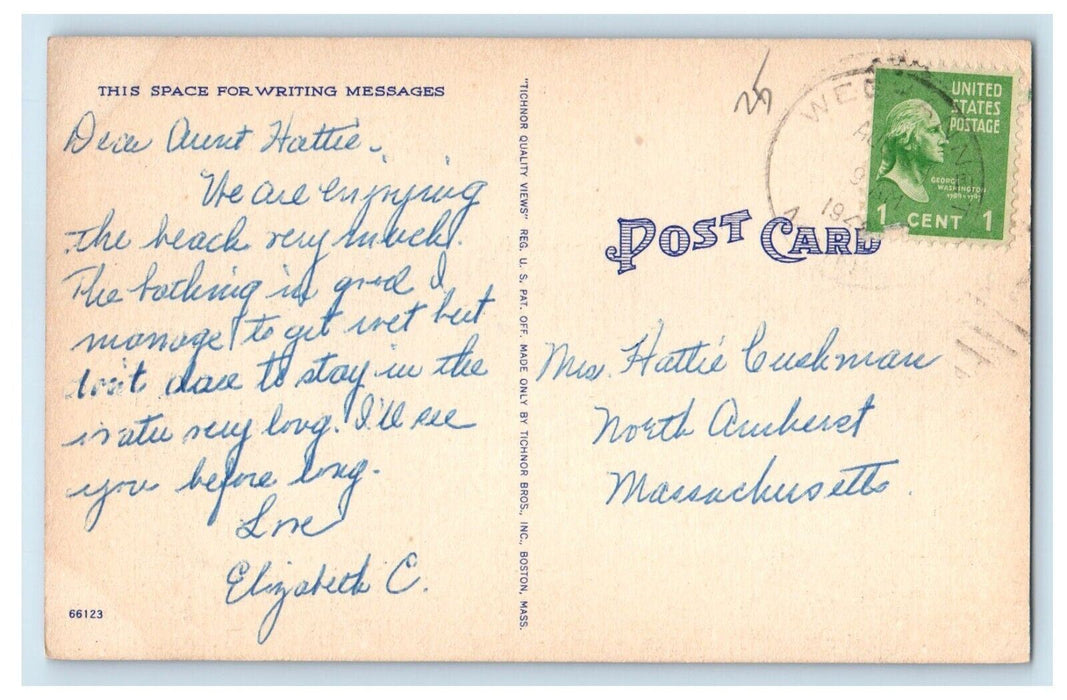 THIS SPACE FOR WRITING MESSAGES
Dear Aunt Hattie,
We are enjoying
the beach very much.
The bathing is good I
manage to get wet but
don't dare to stay in the
water very long. I'll see
you before long.
Love
Elizabeth C.
66123
"TICHNOR QUALITY VIEWS" REG. U. S. PAT. OFF. MADE ONLY BY TICHNOR BROS., INC., BOSTON, MASS.
POST CARD
UNITED
STATES
POSTAGE
GEORGE
WASHINGTON
1 CENT 1
Mrs. Hattie Cushman
North Amherst
Massachusetts.